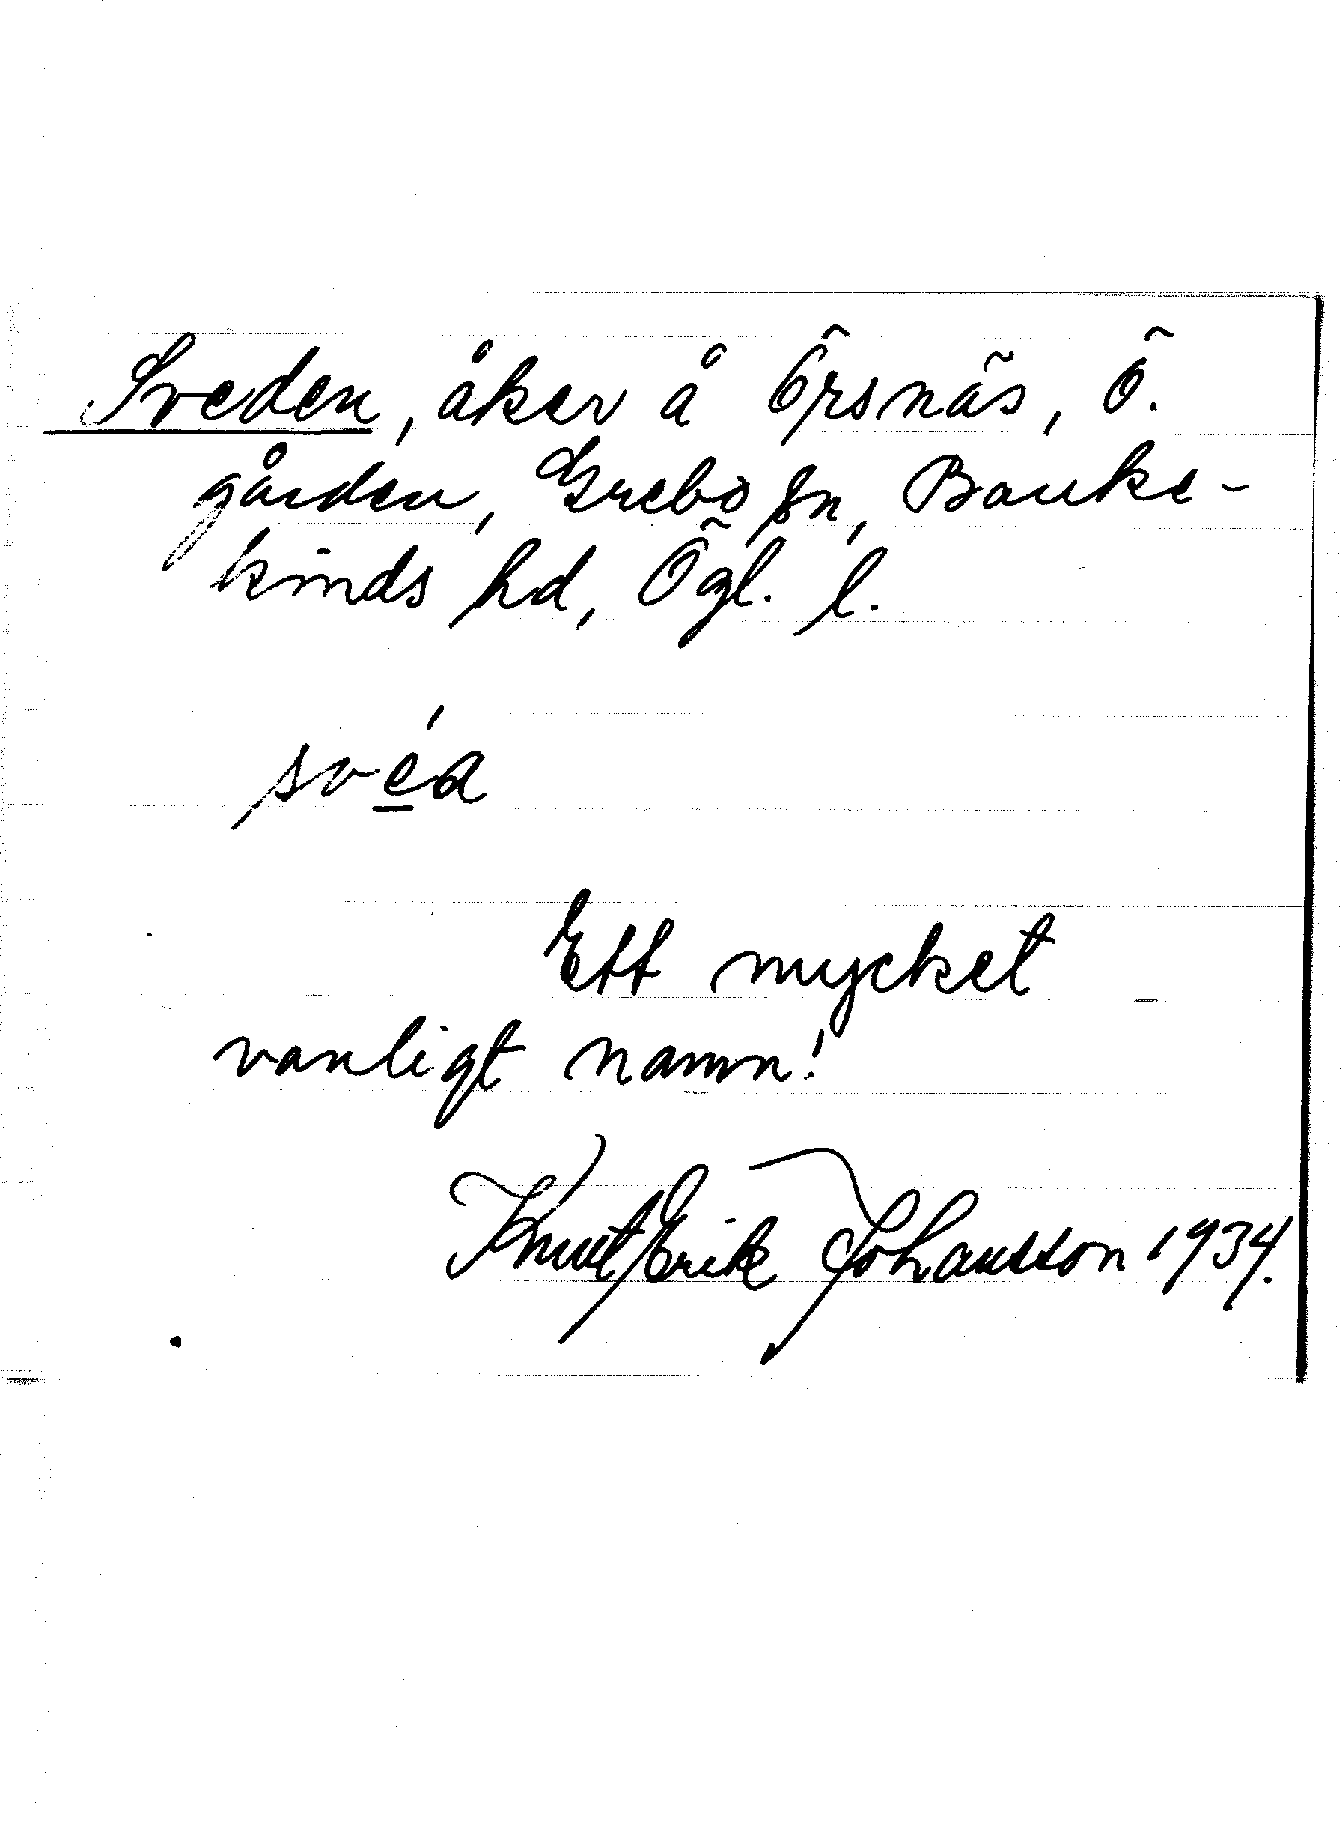 Sveden, åker å Örsnäs, Ö.
gården, Grebo sn, Banke-
kinds hd, Ögl. l.
svéa
Ett mycket
vanligt namn!
Knut Erik Johansson 1934.